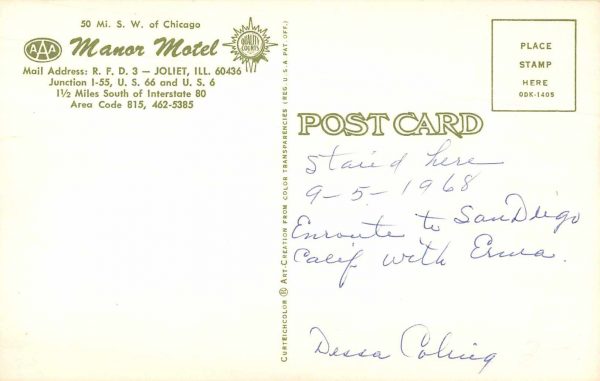 50 Mi. S. W. of Chicago
AAA Manor Motel
QUALITY COURTS
Mail Address: R. F. D. 3 — JOLIET, ILL. 60436
Junction I-55, U. S. 66 and U. S. 6
1½ Miles South of Interstate 80
Area Code 815, 462-5385
CURTEICHCOLOR ® ART-CREATION FROM COLOR TRANSPARENCIES (REG. U.S.A. PAT. OFF.)
PLACE
STAMP
HERE
ODK-1405
POST CARD
Staied here
9-5-1968
Enroute to San Diego
Calif with Erma.
Dessa